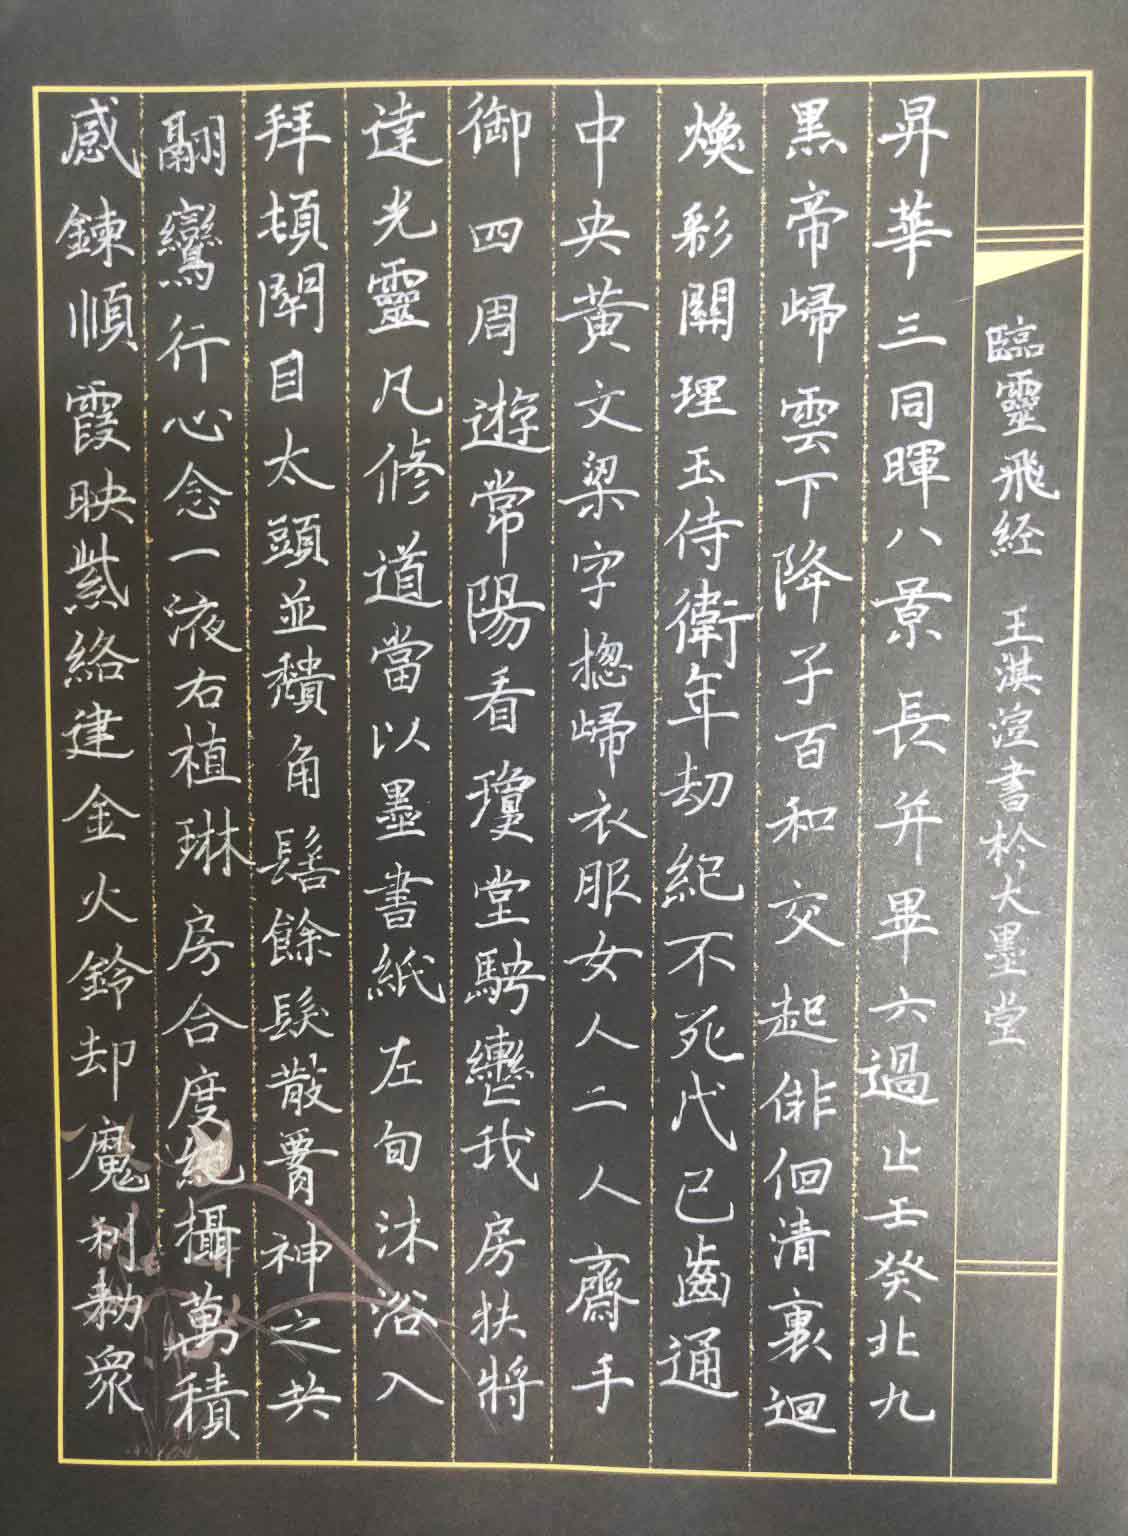 臨靈飛经 王淇渲書於大墨堂
昇華三同暉八景長并畢六過止壬癸北九
黑帝歸雲下降子百和交起俳佪清裏迴
煥彩關理玉侍衛年劫紀不死代已齒通
中央黃文梁字揔歸衣服女人二人齋手
御四周遊常陽看瓊堂騁轡我房扶將
達光靈凡修道當以墨書紙左旬沐浴入
拜頓閈目太頭並穨角髻餘髮散霄神之共
翮鸞行心念一液右植琳房合度絕攝萬積
感鍊順霞映紫絡建金火鈴却魔制勑衆